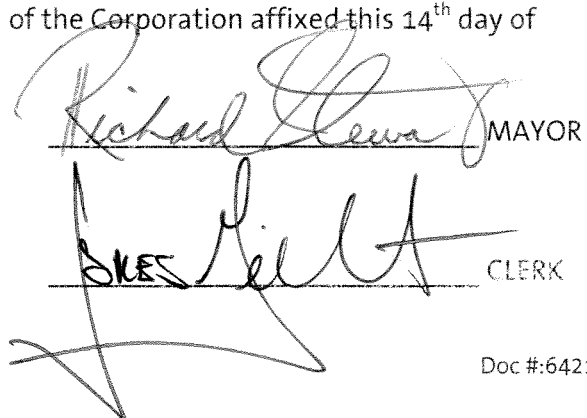 of the Corporation affixed this 14th day of
Richard Stewart MAYOR
CLERK
Doc #:642